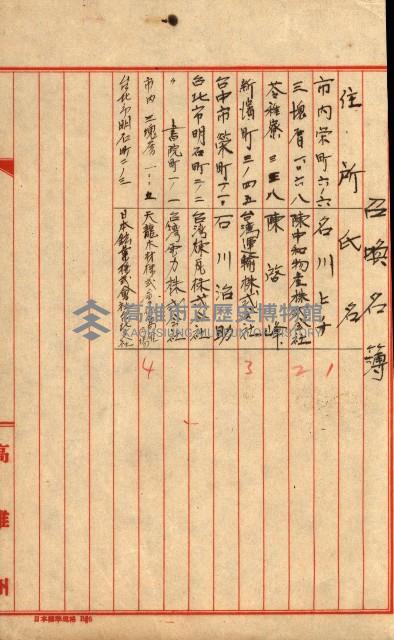 召喚名簿
住所 氏名
市内栄町六ノ六 名川上
三塊厝一〇六八 陳中和物産株式会社
苓雅寮三三八 陳啓峰
新濱町三ノ四五 台湾運輸株式会社
台中市榮町 石川治助
台北市明石町二ノ二 台湾株式会社
〃 書院町一ノ一 台湾電力株式会社
市内三塊厝一〇ノ五 天龍木材株式会社
台北市明石町二ノ三 日本鑛業株式會社
1 2 3 4
高雄州
日本標準規格 B5
高雄市立歷史博物館
KAOHSIUNG MUSEUM OF HISTORY